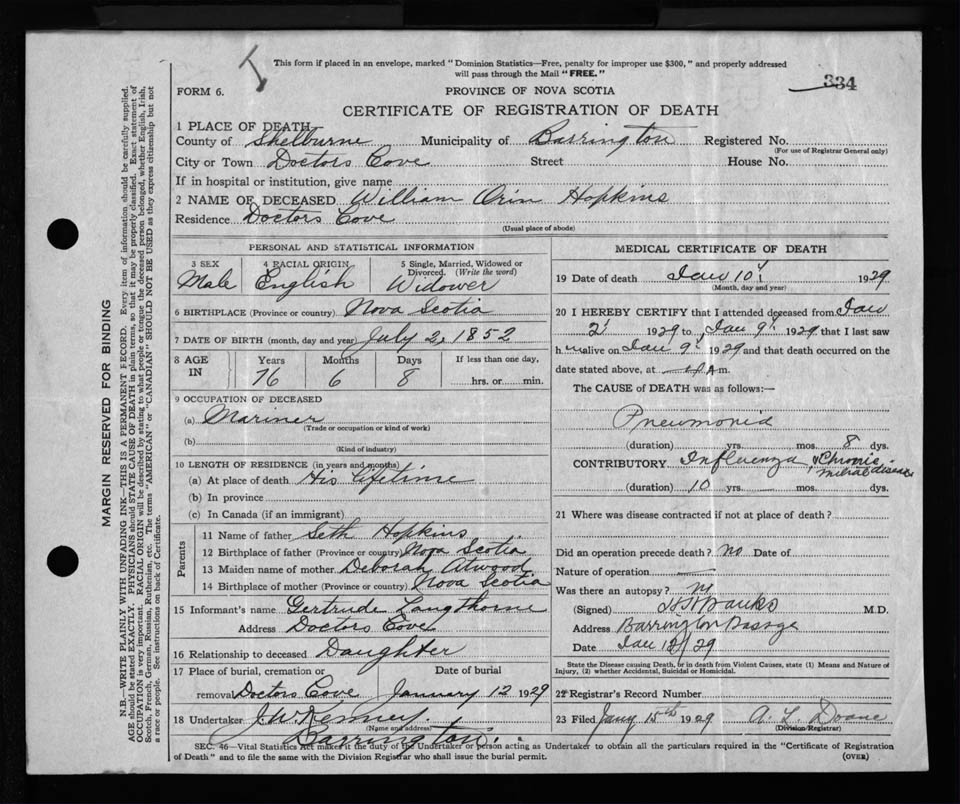 This form if placed in an envelope, marked "Dominion Statistics—Free, penalty for improper use $300," and properly addressed
will pass through the Mail "FREE."
334
FORM 6.
PROVINCE OF NOVA SCOTIA
CERTIFICATE OF REGISTRATION OF DEATH
1 PLACE OF DEATH
County of Shelburne Municipality of Barrington Registered No.
(For use of Registrar General only)
City or Town Doctors Cove Street House No.
If in hospital or institution, give name
2 NAME OF DECEASED William Orin Hopkins
Residence Doctors Cove
(Usual place of abode)
PERSONAL AND STATISTICAL INFORMATION
3 SEX 4 RACIAL ORIGIN 5 Single, Married, Widowed or
Divorced. (Write the word)
Male English Widower
6 BIRTHPLACE (Province or country) Nova Scotia
7 DATE OF BIRTH (month, day and year) July 2, 1852
8 AGE IN Years Months Days If less than one day,
76 6 8 hrs. or min.
9 OCCUPATION OF DECEASED
(a) Mariner
(Trade or occupation or kind of work)
(b)
(Kind of industry)
10 LENGTH OF RESIDENCE (in years and months)
(a) At place of death His Lifetime
(b) In province
(c) In Canada (if an immigrant)
Parents
11 Name of father Seth Hopkins
12 Birthplace of father (Province or country) Nova Scotia
13 Maiden name of mother Deborah Atwood
14 Birthplace of mother (Province or country) Nova Scotia
15 Informant's name Gertrude Langthorne
Address Doctors Cove
16 Relationship to deceased Daughter
17 Place of burial, cremation or Date of burial
removal Doctors Cove January 12 1929
18 Undertaker J. W. Kenney.
(Name and address)
Barrington
MEDICAL CERTIFICATE OF DEATH
19 Date of death Jan 10 1929
(Month, day and year)
20 I HEREBY CERTIFY that I attended deceased from Jan
2 1929 to Jan 9 1929 that I last saw
h alive on Jan 9 1929 and that death occurred on the
date stated above, at m.
The CAUSE of DEATH was as follows:—
Pneumonia
(duration) yrs. mos. 8 dys.
CONTRIBUTORY Influenza & Chronic
mitral disease
(duration) 10 yrs. mos. dys.
21 Where was disease contracted if not at place of death?
Did an operation precede death? no Date of
Nature of operation
Was there an autopsy? no
(Signed) Banks M.D.
Address Barrington Passage
Date Jan 12/29
State the Disease causing Death, or in death from Violent Causes, state (1) Means and Nature of
Injury, (2) whether Accidental, Suicidal or Homicidal.
22 Registrar's Record Number
23 Filed Jany 15th 1929 A. L. Doane
(Division Registrar)
SEC. 46—Vital Statistics Act makes it the duty of the Undertaker or person acting as Undertaker to obtain all the particulars required in the "Certificate of Registration
of Death" and to file the same with the Division Registrar who shall issue the burial permit.
(OVER)
MARGIN RESERVED FOR BINDING
N.B.—WRITE PLAINLY WITH UNFADING INK—THIS IS A PERMANENT RECORD. Every item of information should be carefully supplied.
AGE should be stated EXACTLY. PHYSICIANS should STATE CAUSE OF DEATH in plain terms, so that it may be properly classified. Exact statement of
OCCUPATION is very important. RACIAL ORIGIN will be described by stating to what people or tongue the deceased person belonged, whether English, Irish,
Scotch, French, German, Russian, Ruthenian, etc. The terms "AMERICAN" or "CANADIAN" SHOULD NOT BE USED as they express citizenship but not
a race or people. See instructions on back of Certificate.